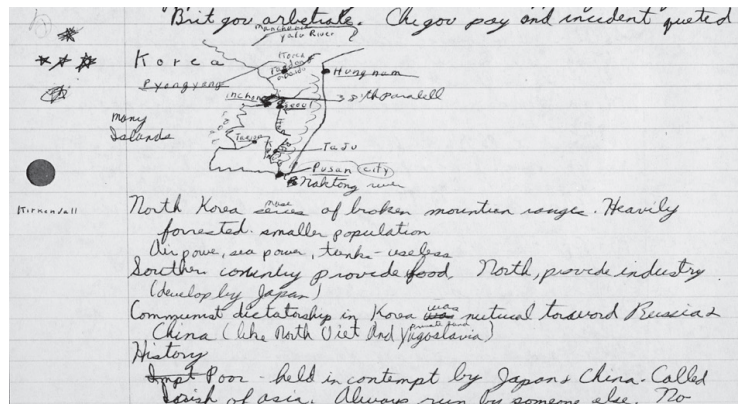 Brit gov arbetrate. Chi gov pay and incident queted
Manchuria
Yalu River
Korea
Korea
Pyongyang
Hungnam
Inchon
Seoul
38th paralell
many
Islands
Taejon
TaJu
Pusan city
Naktong river
Kirkendall
North Korea series of broken mountian ranges. Heavily
forrested. smaller population
Air powe, sea power, tanks - useless
Southern comenly provide food North, provide industry
(develop by Japan)
Communist dictatorship in Korea was nutural toraword Russia &
China (like North Viet And Yugoslavia)
History
Impt Poor - held in contempt by Japan & China. Called
Irish of asia. Always run by someone else. No